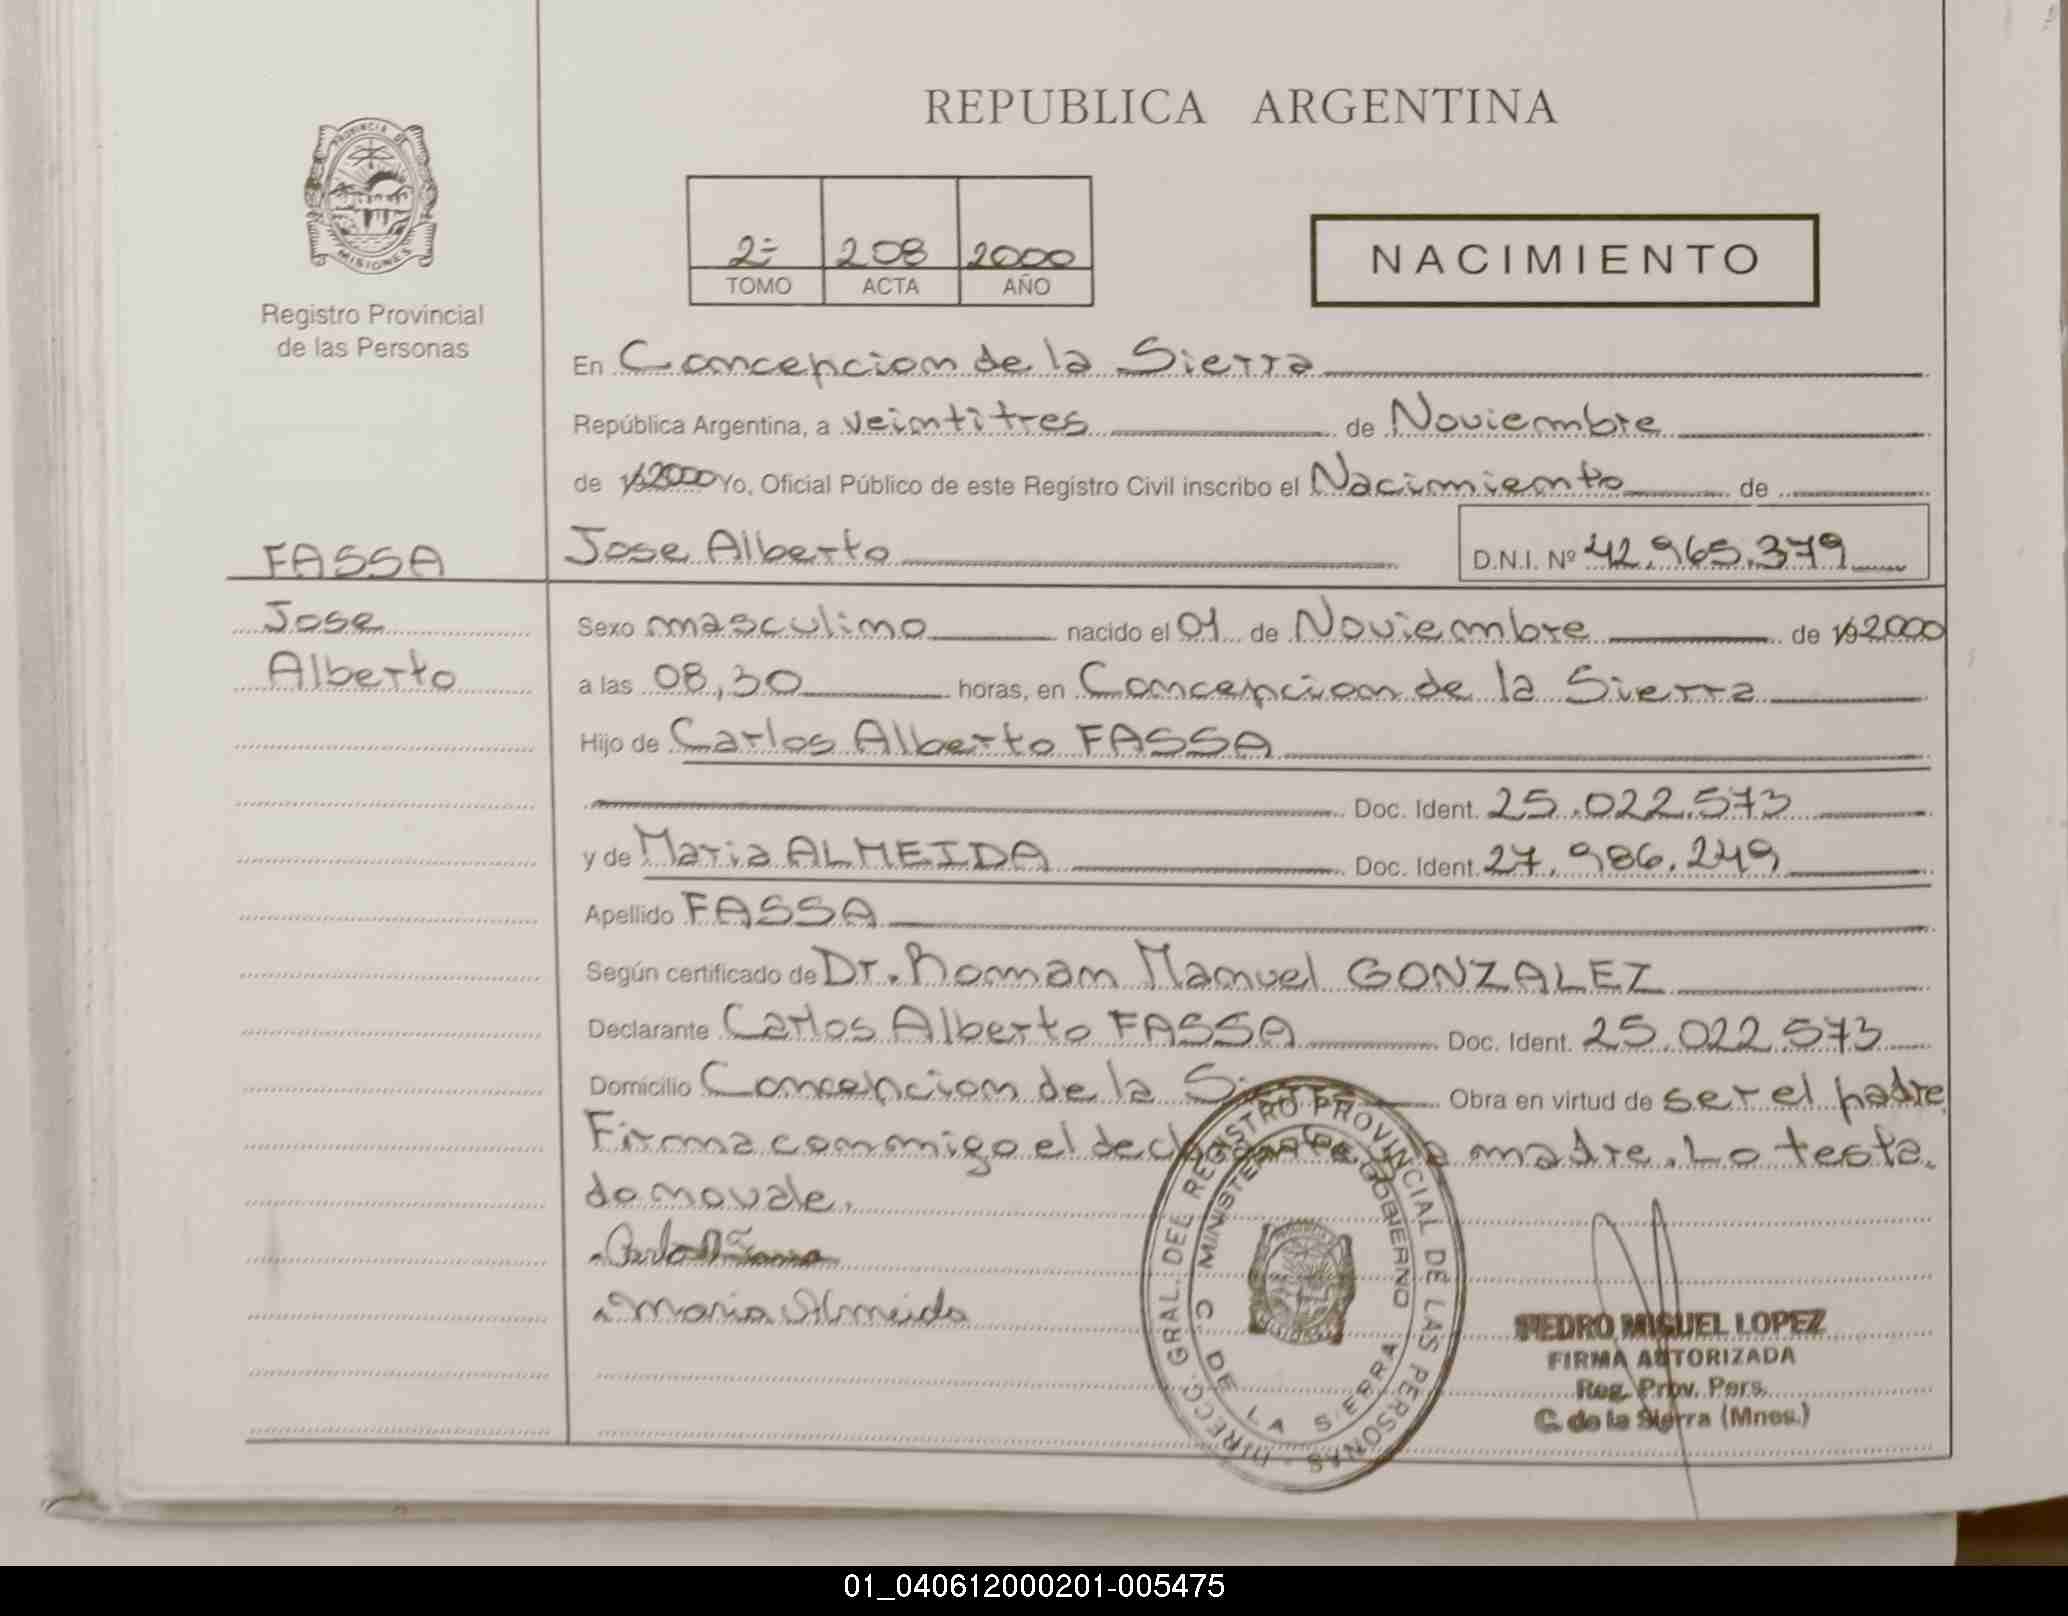 REPUBLICA ARGENTINA
PROVINCIA DE
MISIONES
Registro Provincial
de las Personas
2º 208 2000
TOMO ACTA AÑO
NACIMIENTO
En Concepcion de la Sierra
República Argentina, a veintitres de Noviembre
de 2000 Yo, Oficial Público de este Registro Civil inscribo el Nacimiento de
FASSA Jose Alberto D.N.I. Nº 42.965.379
Jose Sexo masculino nacido el 01 de Noviembre de 2000
Alberto a las 08,30 horas, en Concepcion de la Sierra
Hijo de Carlos Alberto FASSA
Doc. Ident. 25.022.573
y de Maria ALMEIDA Doc. Ident. 27.986.249
Apellido FASSA
Según certificado de Dr. Roman Manuel GONZALEZ
Declarante Carlos Alberto FASSA Doc. Ident. 25.022.573
Domicilio Concepcion de la Sierra Obra en virtud de ser el padre
Firma conmigo el declarante y la madre. Lo testa.
do no vale.
Maria Almeida
DIRECC. GRAL. DEL REGISTRO PROVINCIAL DE LAS PERSONAS
MINISTERIO DE GOBIERNO
C. DE LA SIERRA
PEDRO MIGUEL LOPEZ
FIRMA AUTORIZADA
Reg. Prov. Pers.
C. de la Sierra (Mnes.)
01_040612000201-005475